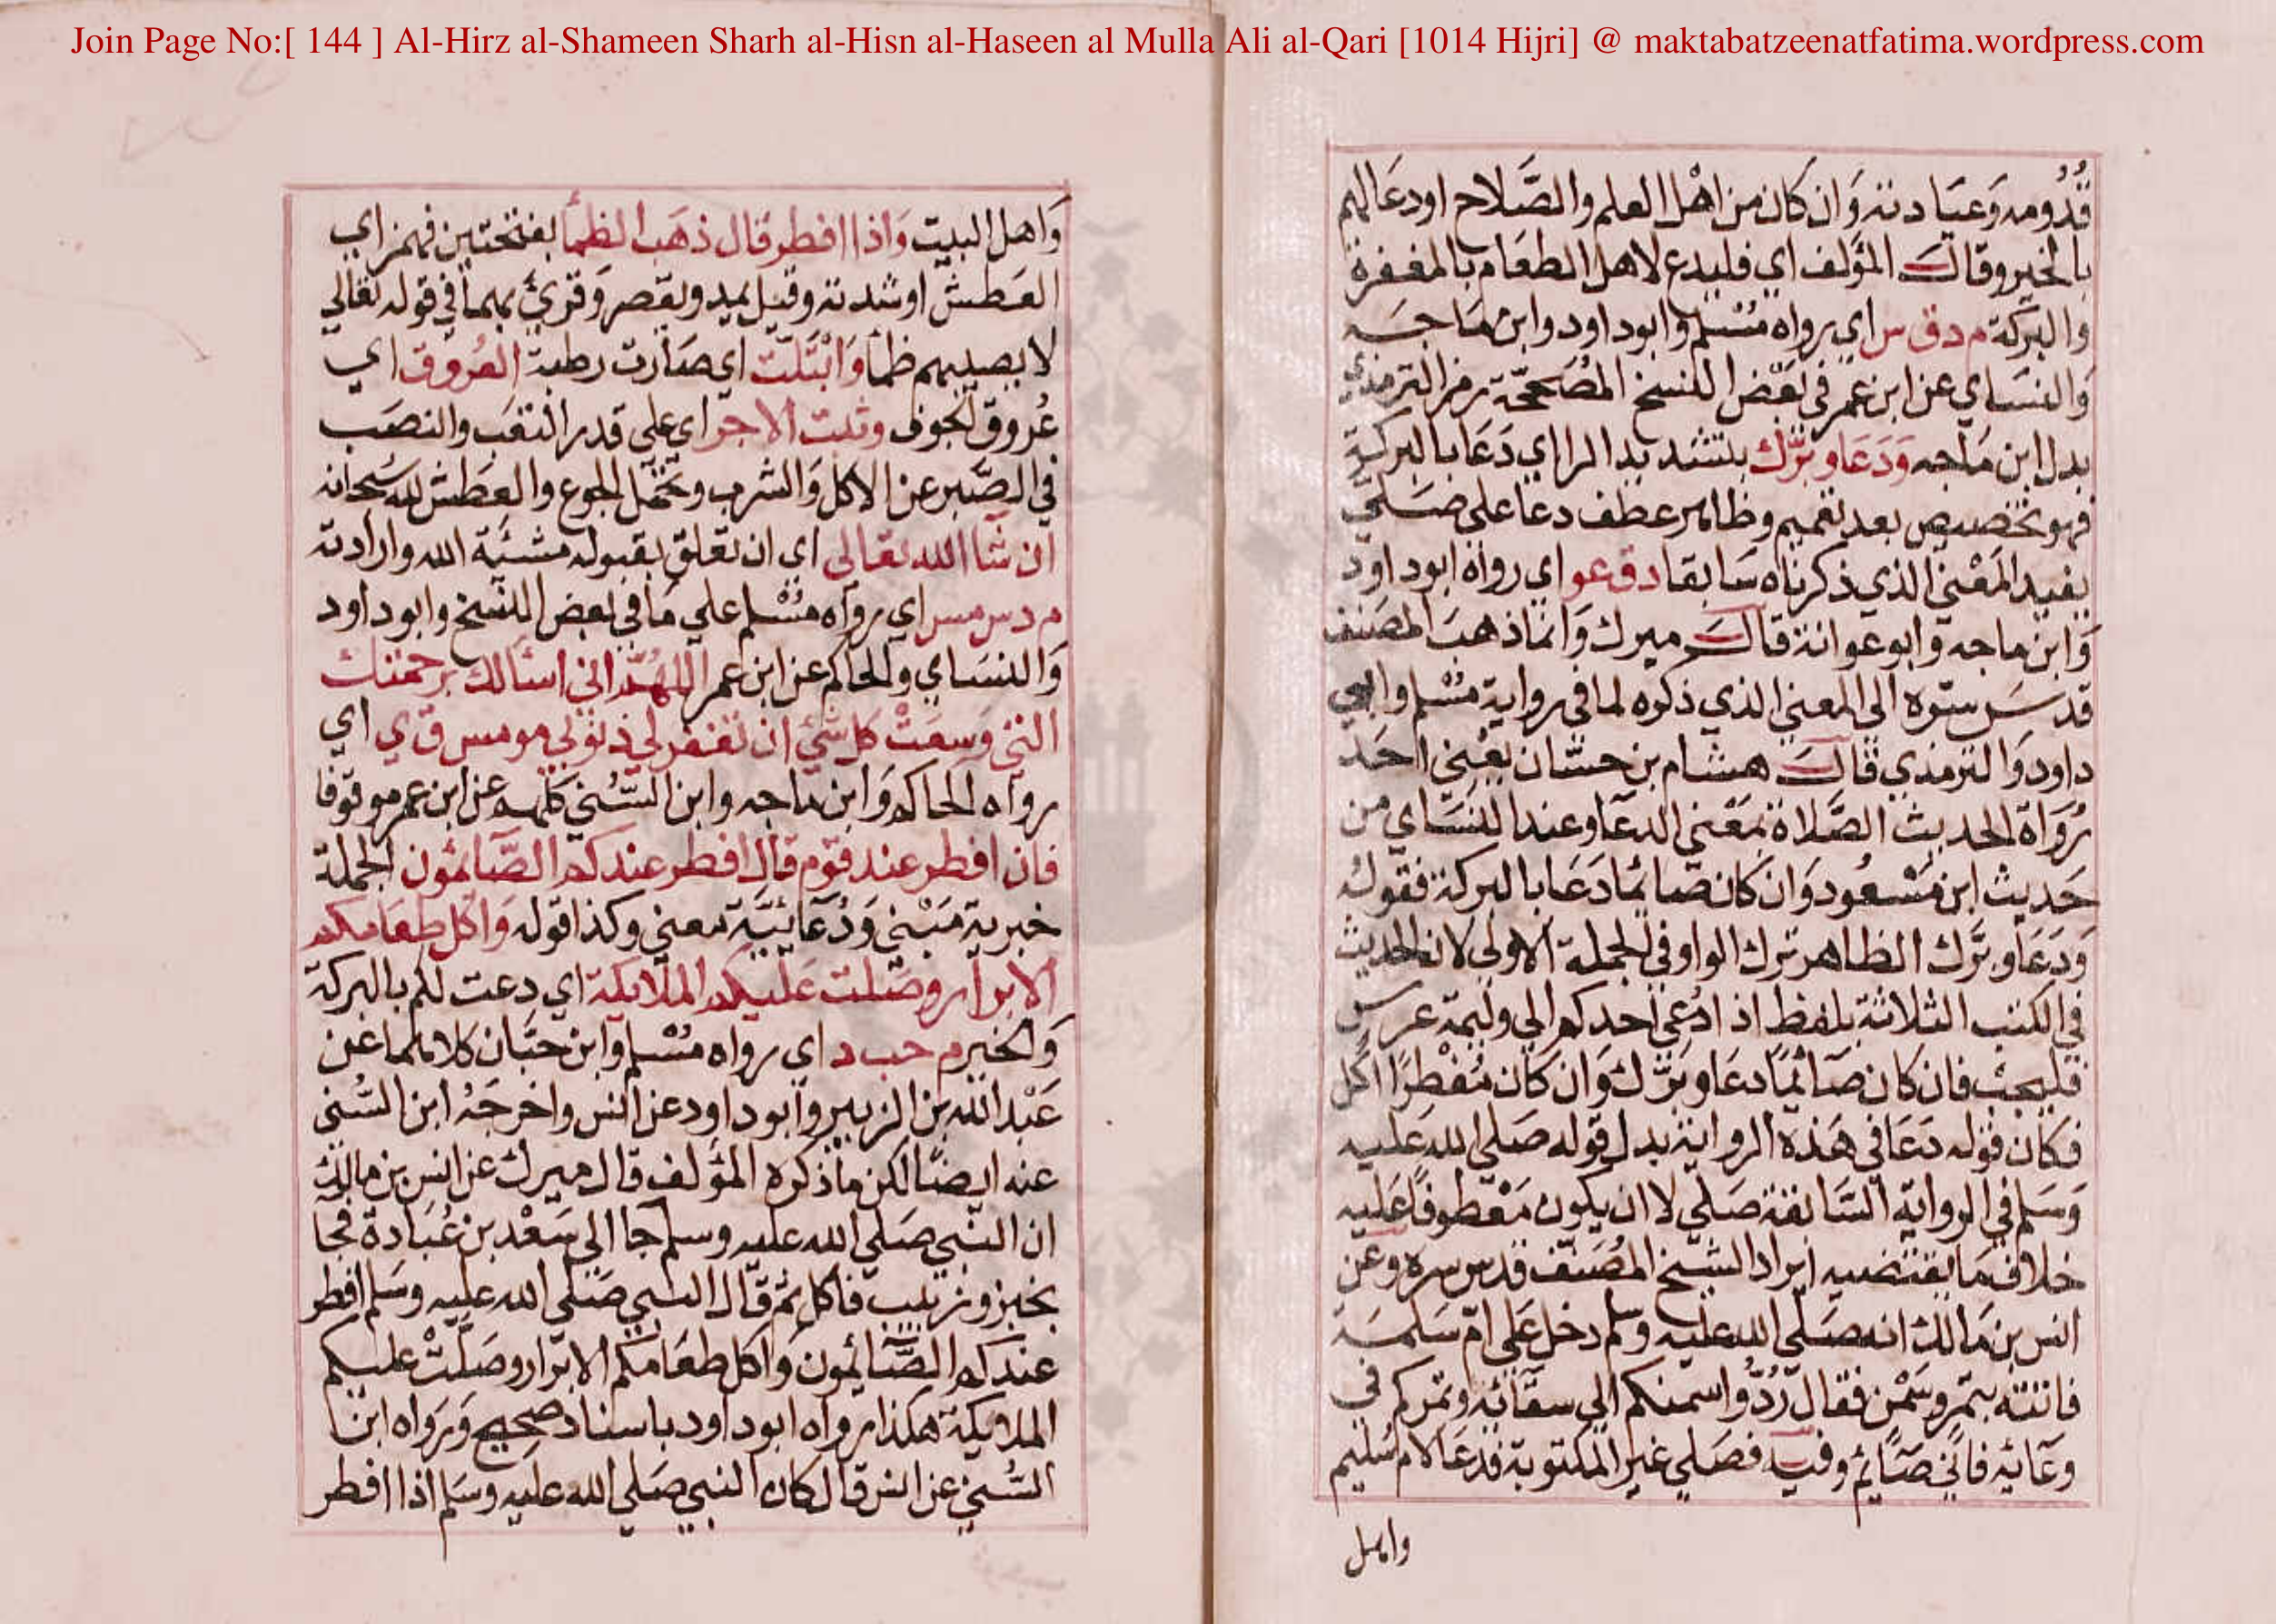 Join Page No:[ 144 ] Al-Hirz al-Shameen Sharh al-Hisn al-Haseen al Mulla Ali al-Qari [1014 Hijri] @ maktabatzeenatfatima.wordpress.com
قُدُومه وَعيَادته وَان كان من اهْل العلم والصَّلاح او دعَا لهم
بالخير وقال المؤلف اي فليدع لاهل الطعَام بالمغفرة
والبركة م د ق س اي رواه مُسْلم وابو داود وابن مَاجَه
وَالنسَاي عن ابن عمر في بَعْض النسخ المُصَححّة رمز الترمذي
بدل ابن مَاجه وَدَعَا وبَرَّك بتشديد الرا اي دَعَا بالبركة
فهو تخصيص بعد تعميم وظاهر عطف دعا على صَلى
يفيد المَعْنى الذي ذكرناه سَابقا د ق عو اي رواه ابو داود
وَابن ماجه وابو عوانة قال ميرك وَانما ذهبَ المصَنف
قدسَ سره الى المعنى الذي ذكره لما في رواية مسْلم وابي
داود وَالترمذي قال هشام بن حسّان يعْني احَد
رُوَاة الحديث الصَّلاة بمَعْنى الدعَا وعند النسَاي من
حَديث ابن مَسْعُود وَان كان صَائما دَعَا بالبركة فقوله
وَدَعَا وبَرَّك الظاهر ترك الواو في الجملة الاولى لان الحديث
في الكتب الثلاثة بلفظ اذا دُعي احدكم الى وليمة عرس
فليجبْ فان كان صَائمًا دعَا وبَرَّك وَان كان مُفْطرًا اكل
فكان قوله دَعَا في هَذه الرواية بدل قوله صَلى الله عَليه
وَسَلم في الرواية السَّابقة صَلى لا ان يكون مَعْطوفًا عَليه
خلاف مَا يقتضيه ايراد الشيخ المُصَنف قدس سره وعن
انس بن مَالك انه صَلى الله عليه وسلم دخل عَلى امّ سَلمَة
فاتته بتمر وسَمْن فقال رُدُّوا سمنكم الى سقَائه وتمركم في
وعَائه فاني صَائم وفيه فصَلى غير المكتوبة فدعَا لام سُليم
واهل
وَاهل البيت وَاذا افطر قال ذهَب الظمَأ بفتحتين فهمز اي
العَطش او شدته وقيل يمد ويقصر وَقرئ بهما في قوله تعَالى
لا يصيبهم ظمأ وَابْتَلّت اي صَارت رطبة العُروق اي
عُروق الجوف وثبت الاجر اي على قدر التعَب والنصَب
في الصَّبر عن الاكل وَالشرب وتحمّل الجوع والعطش لله سُبحانه
ان شَا الله تعَالى اي ان تعَلق بقبوله مشئَة الله وارادته
م د س مس اي رواه مُسْلم على مَا في بعض النسخ وابو داود
وَالنسَاي والحاكم عن ابن عمر اللهُمَّ اني اسْألك برحمتك
التي وَسعَتْ كل شَيْ ان تغفر لي ذنوبي مو مس ق ي اي
رواه الحاكم وَابن مَاجه وابن السُّني كلهم عن ابن عمر موقوفا
فان افطر عند قوم قال افطر عندكم الصَّائمُون الجملة
خبرية مَبْنى وَدُعَائيَّة معنى وكذا قوله وَاكل طعَامكم
الابرَار وصَلت عَليكم الملايكة اي دعت لكم بالبركة
وَالخير م حب د اي رواه مُسْلم وابن حبَّان كلاهُما عن
عَبْد الله بن الزبير وابو داود عن انس واخرجَهُ ابن السُّني
عنه ايضًا لكن مَا ذكره المؤلف قال ميرك عن انس بن مالك
ان النبي صَلى الله عليه وسلم جَا الى سَعْد بن عُبَادة فجَا
بخبز وزبيب فاكل ثم قال النبي صَلى الله عليه وسَلم افطر
عندكم الصَّائمون وَاكل طعَامكم الابرَار وصَلَّتْ عليكم
الملايكة هكذا رواه ابو داود باسناد صحيح وَرَوَاه ابن
السُّني عن انس قال كان النبي صَلى الله عليه وسَلم اذا افطر